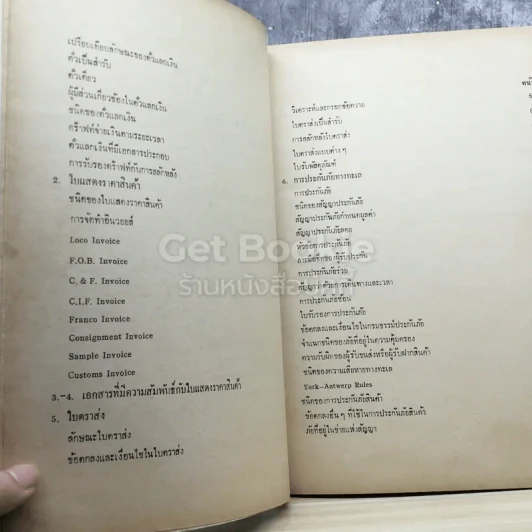 เปรียบเทียบลักษณะของตั๋วแลกเงิน
ตั๋วเป็นสำรับ
ตั๋วเดี่ยว
ผู้มีส่วนเกี่ยวข้องในตั๋วแลกเงิน
ชนิดของตั๋วแลกเงิน
ดร๊าฟท์จ่ายเงินตามระยะเวลา
ตั๋วแลกเงินที่มีเอกสารประกอบ
การรับรองดร๊าฟท์กับการสลักหลัง
2. ใบแสดงราคาสินค้า
ชนิดของใบแสดงราคาสินค้า
การจัดทำอินวอยส์
Loco Invoice
F.O.B. Invoice
C. & F. Invoice
C.I.F. Invoice
Franco Invoice
Consignment Invoice
Sample Invoice
Customs Invoice
3.-4. เอกสารที่มีความสัมพันธ์กับใบแสดงราคาสินค้า
5. ใบตราส่ง
ลักษณะใบตราส่ง
ข้อตกลงและเงื่อนไขในใบตราส่ง
วิเคราะห์และกรอกข้อความ
ใบตราส่งเป็นสำรับ
การสลักหลังใบตราส่ง
ใบตราส่งแบบต่าง ๆ
ใบรับพัสดุภัณฑ์
6. การประกันภัยทางทะเล
การประกันภัย
ชนิดของสัญญาประกันภัย
สัญญาประกันภัยกำหนดมูลค่า
สัญญาประกันภัยลอย
หัวข้อการประกันภัย
ลายมือชื่อของผู้รับประกัน
การประกันภัยร่วม
สัญญาว่าด้วยการเดินทางและเวลา
การประกันภัยซ้อน
ใบรับรองการประกันภัย
ข้อตกลงและเงื่อนไขในกรมธรรม์ประกันภัย
จำแนกชนิดของภัยที่อยู่ในความคุ้มครอง
ความรับผิดของผู้รับขนส่งหรือผู้รับฝากสินค้า
ชนิดของความเสียหายทางทะเล
York-Antwerp Rules
ชนิดของการประกันภัยสินค้า
ข้อตกลงอื่น ๆ ที่ใช้ในการประกันภัยสินค้า
ภัยที่อยู่ในข่ายแห่งสัญญา